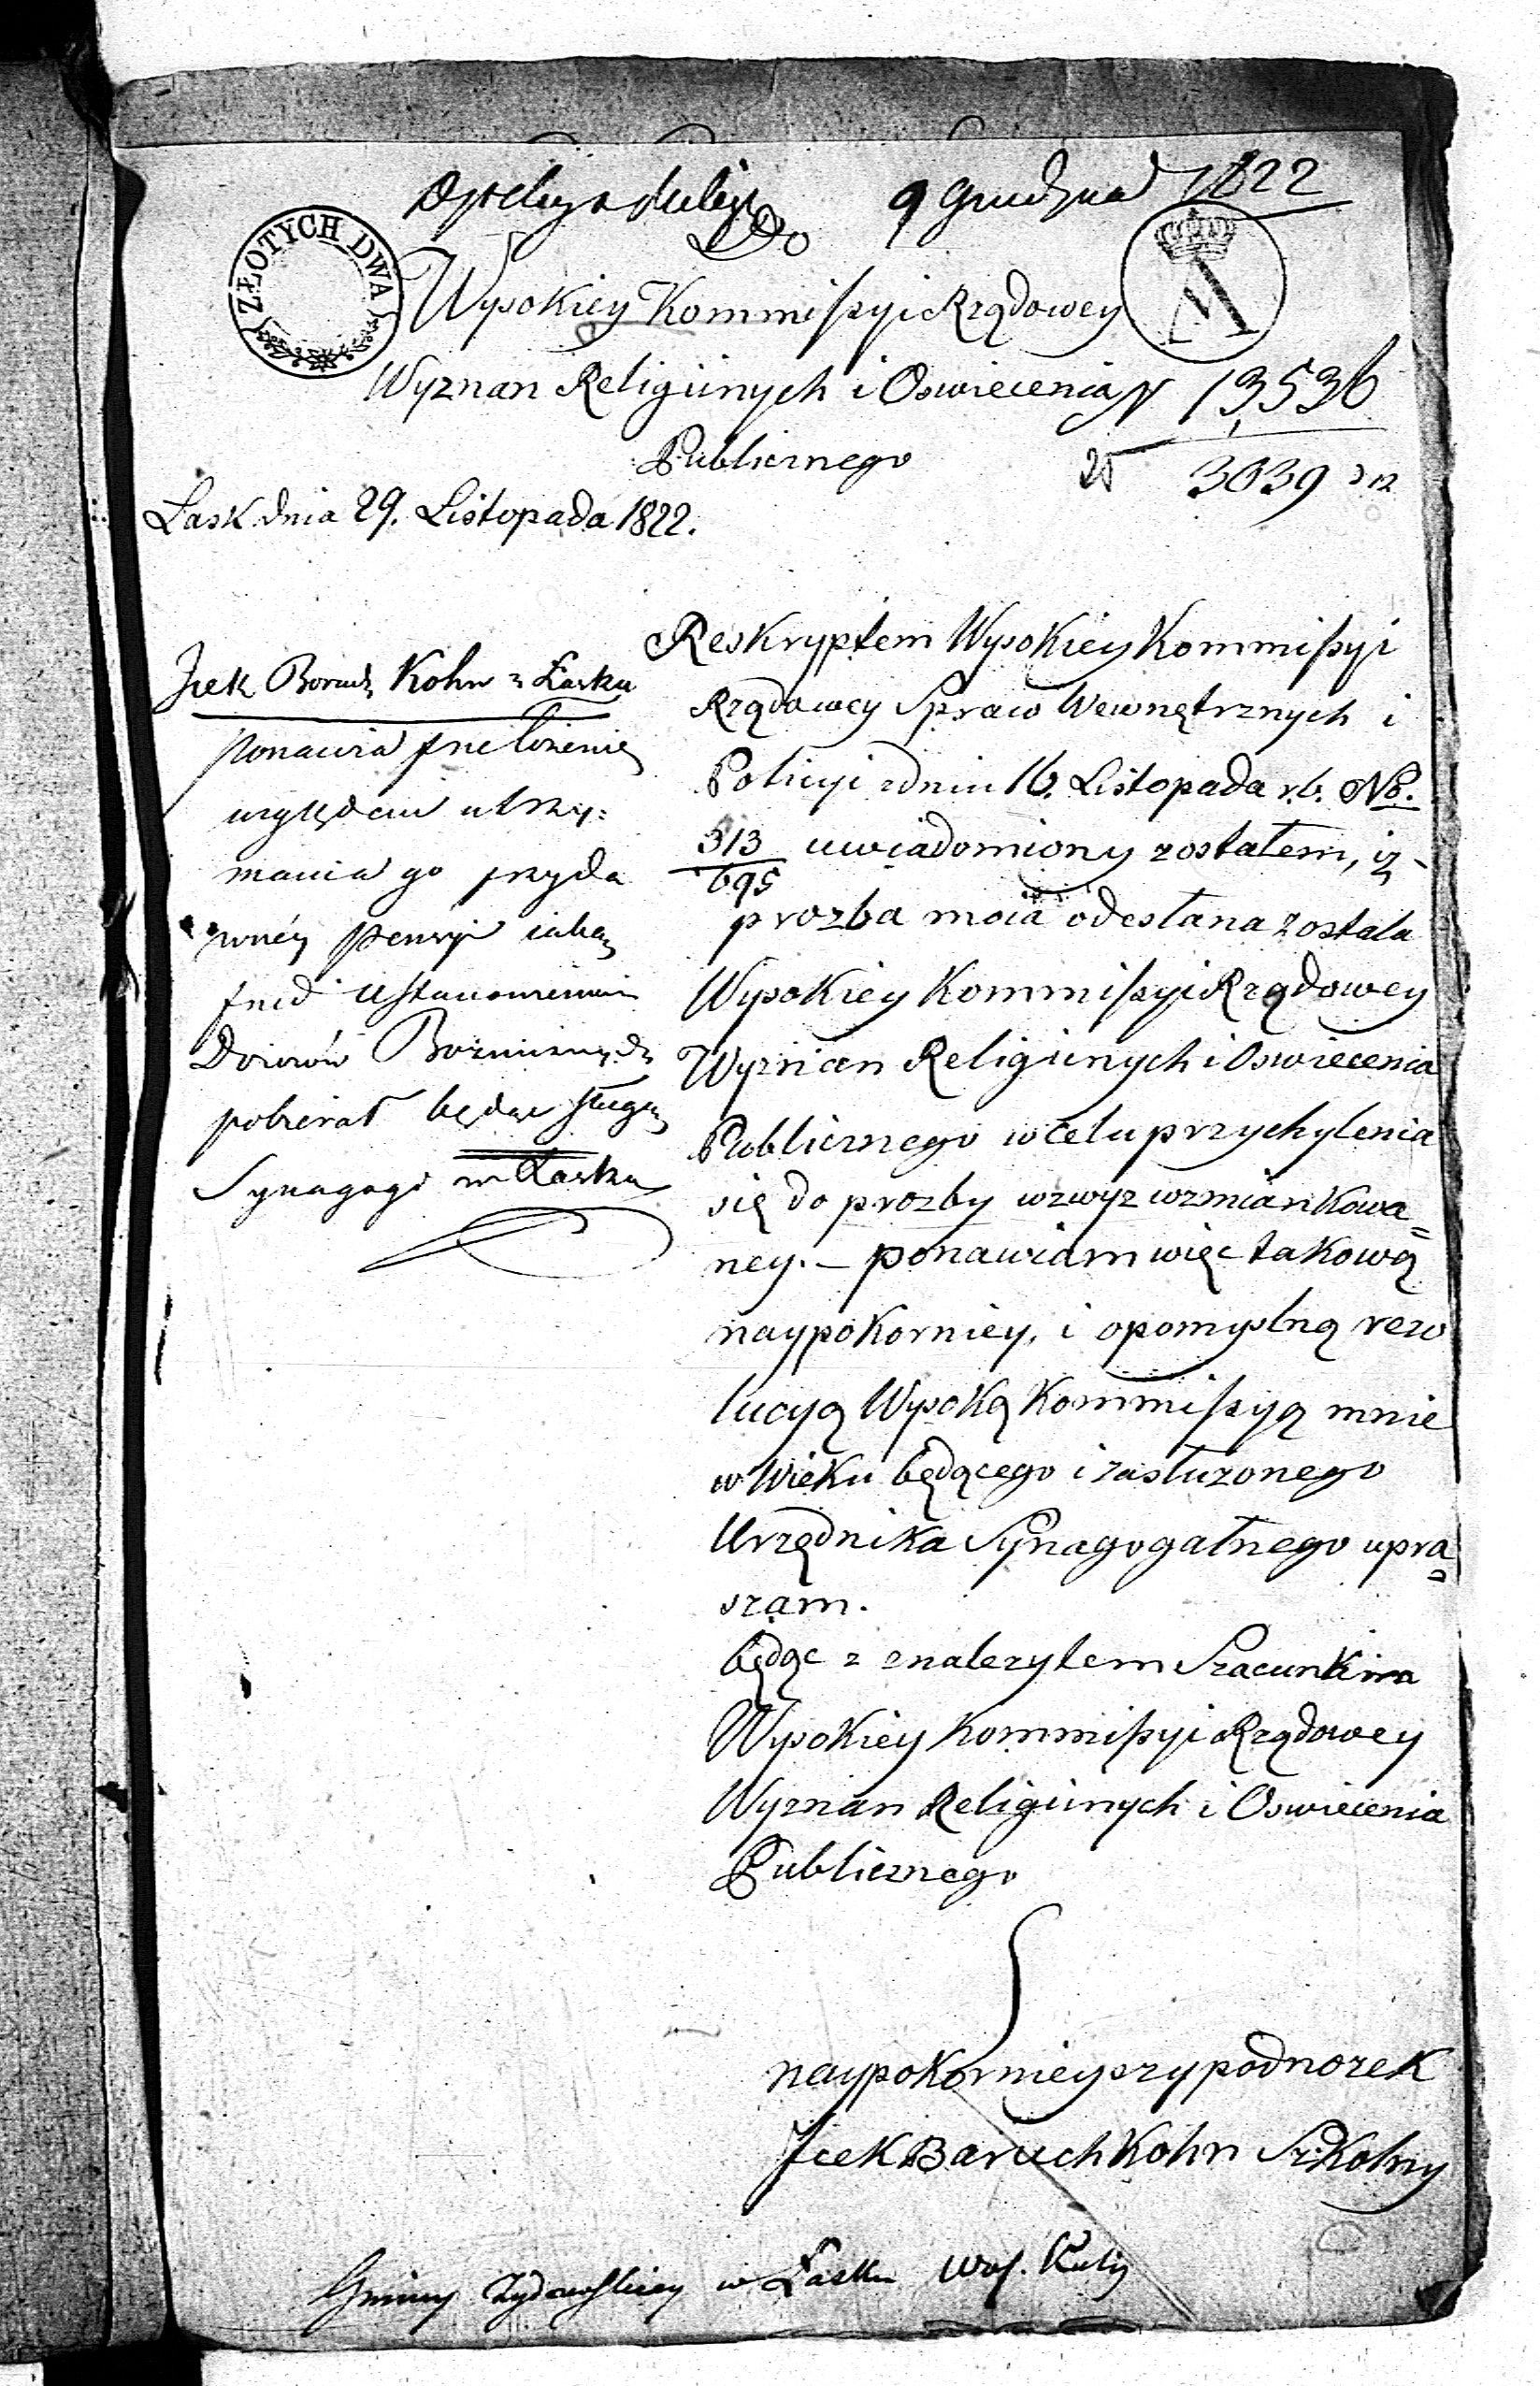 9 Grudnia 1822
Do
ZŁOTYCH DWA
Wysokiey Kommissyi Rządowey
Wyznan Religiinych i Oswiecenia N 13,536
Publicznego
25 3039
Łask dnia 29. Listopada 1822.
Icek Boruch Kohn z Łasku
ponawia przełożenie
względem utrzy:
mania go przy da
wnéy pensyi iaką
przed ustanowieniem
Dozorów Bożniczych
pobierał będąc sługą
Synagogi w Łasku
Reskryptem Wysokiey Kommissyi
Rządowey Spraw Wewnętrznych i
Policyi z dniu 16. Listopada r.b. No.
313/695 uwiadomiony zostałem, iz
prozba moia odesłana zostala
Wysokiey Kommissyi Rządowey
Wyznan Religiinych i Oswiecenia
Publicznego w celu przychylenia
się do prozby wzwyz wzmiankowa=
ney. – ponawiam więc takową
naypokorniey, i o pomyslną rezo
lucyą Wysoką Kommissyą mnie
w Wieku będącego i zasłuzonego
Urzędnika Synagogalnego upra=
szam.
będąc z znalezytem Szacunkim
Wysokiey Kommissyi Rządowey
Wyznan Religiinych i Oswiecenia
Publicznego
naypokornieyszy podnozek
Icek Baruch Kohn Szkolny
Gminy Zydowskiey w Łasku Woj. Kalis